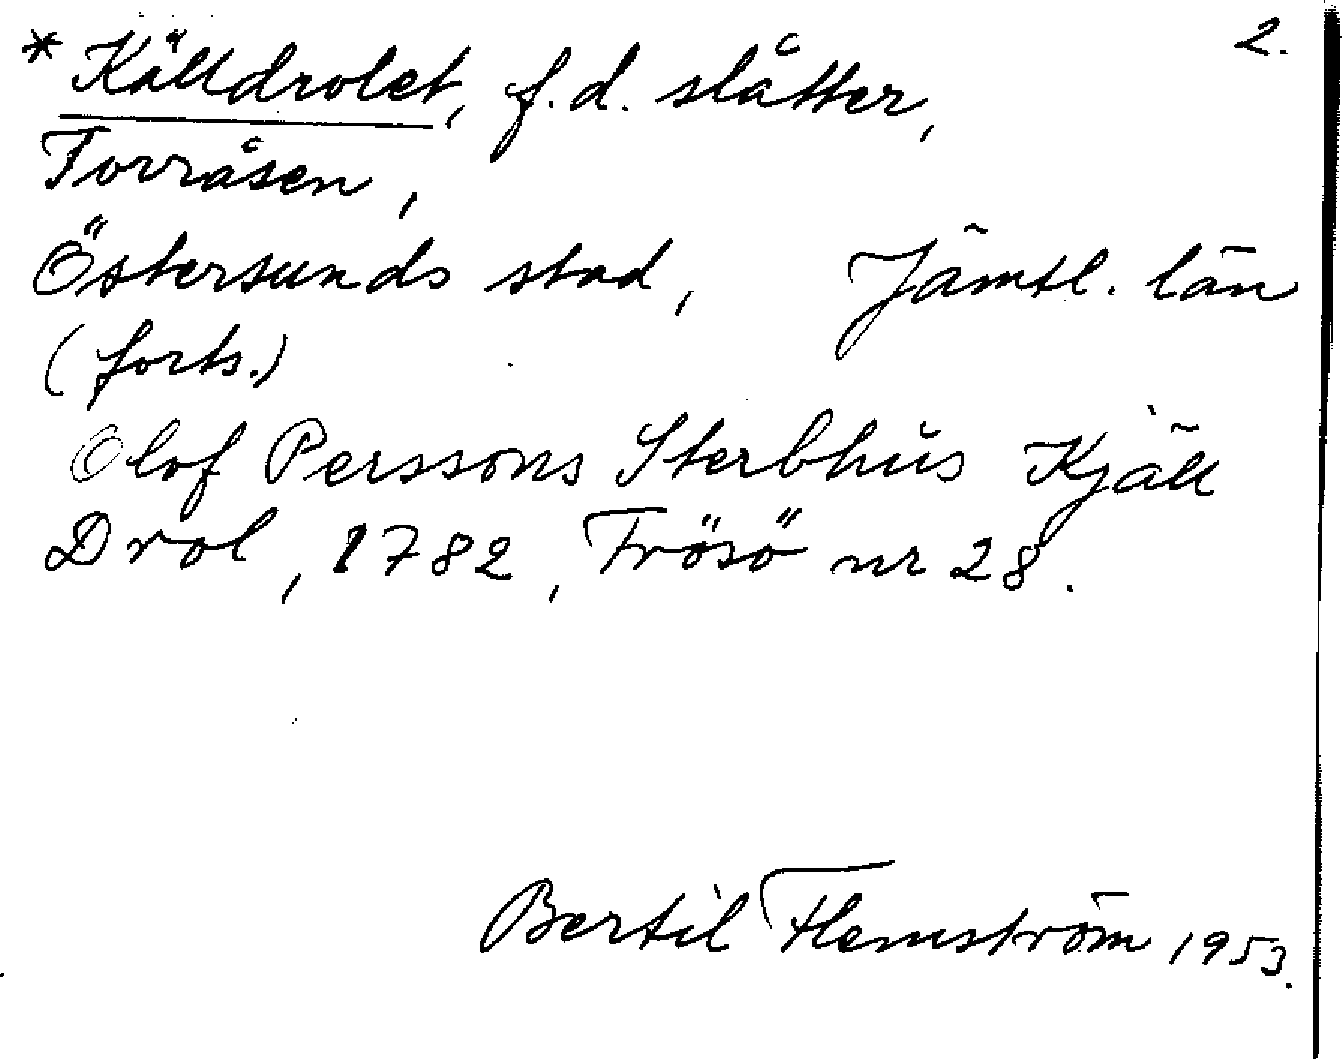 * Källdrolet, f.d. slåtter, 2.
Torråsen,
Östersunds stad, Jämtl. län
(forts.)
Olof Perssons Sterbhus Kjäll
Drol, 1782, Frösö nr 28.
Bertil Flemström 1953.